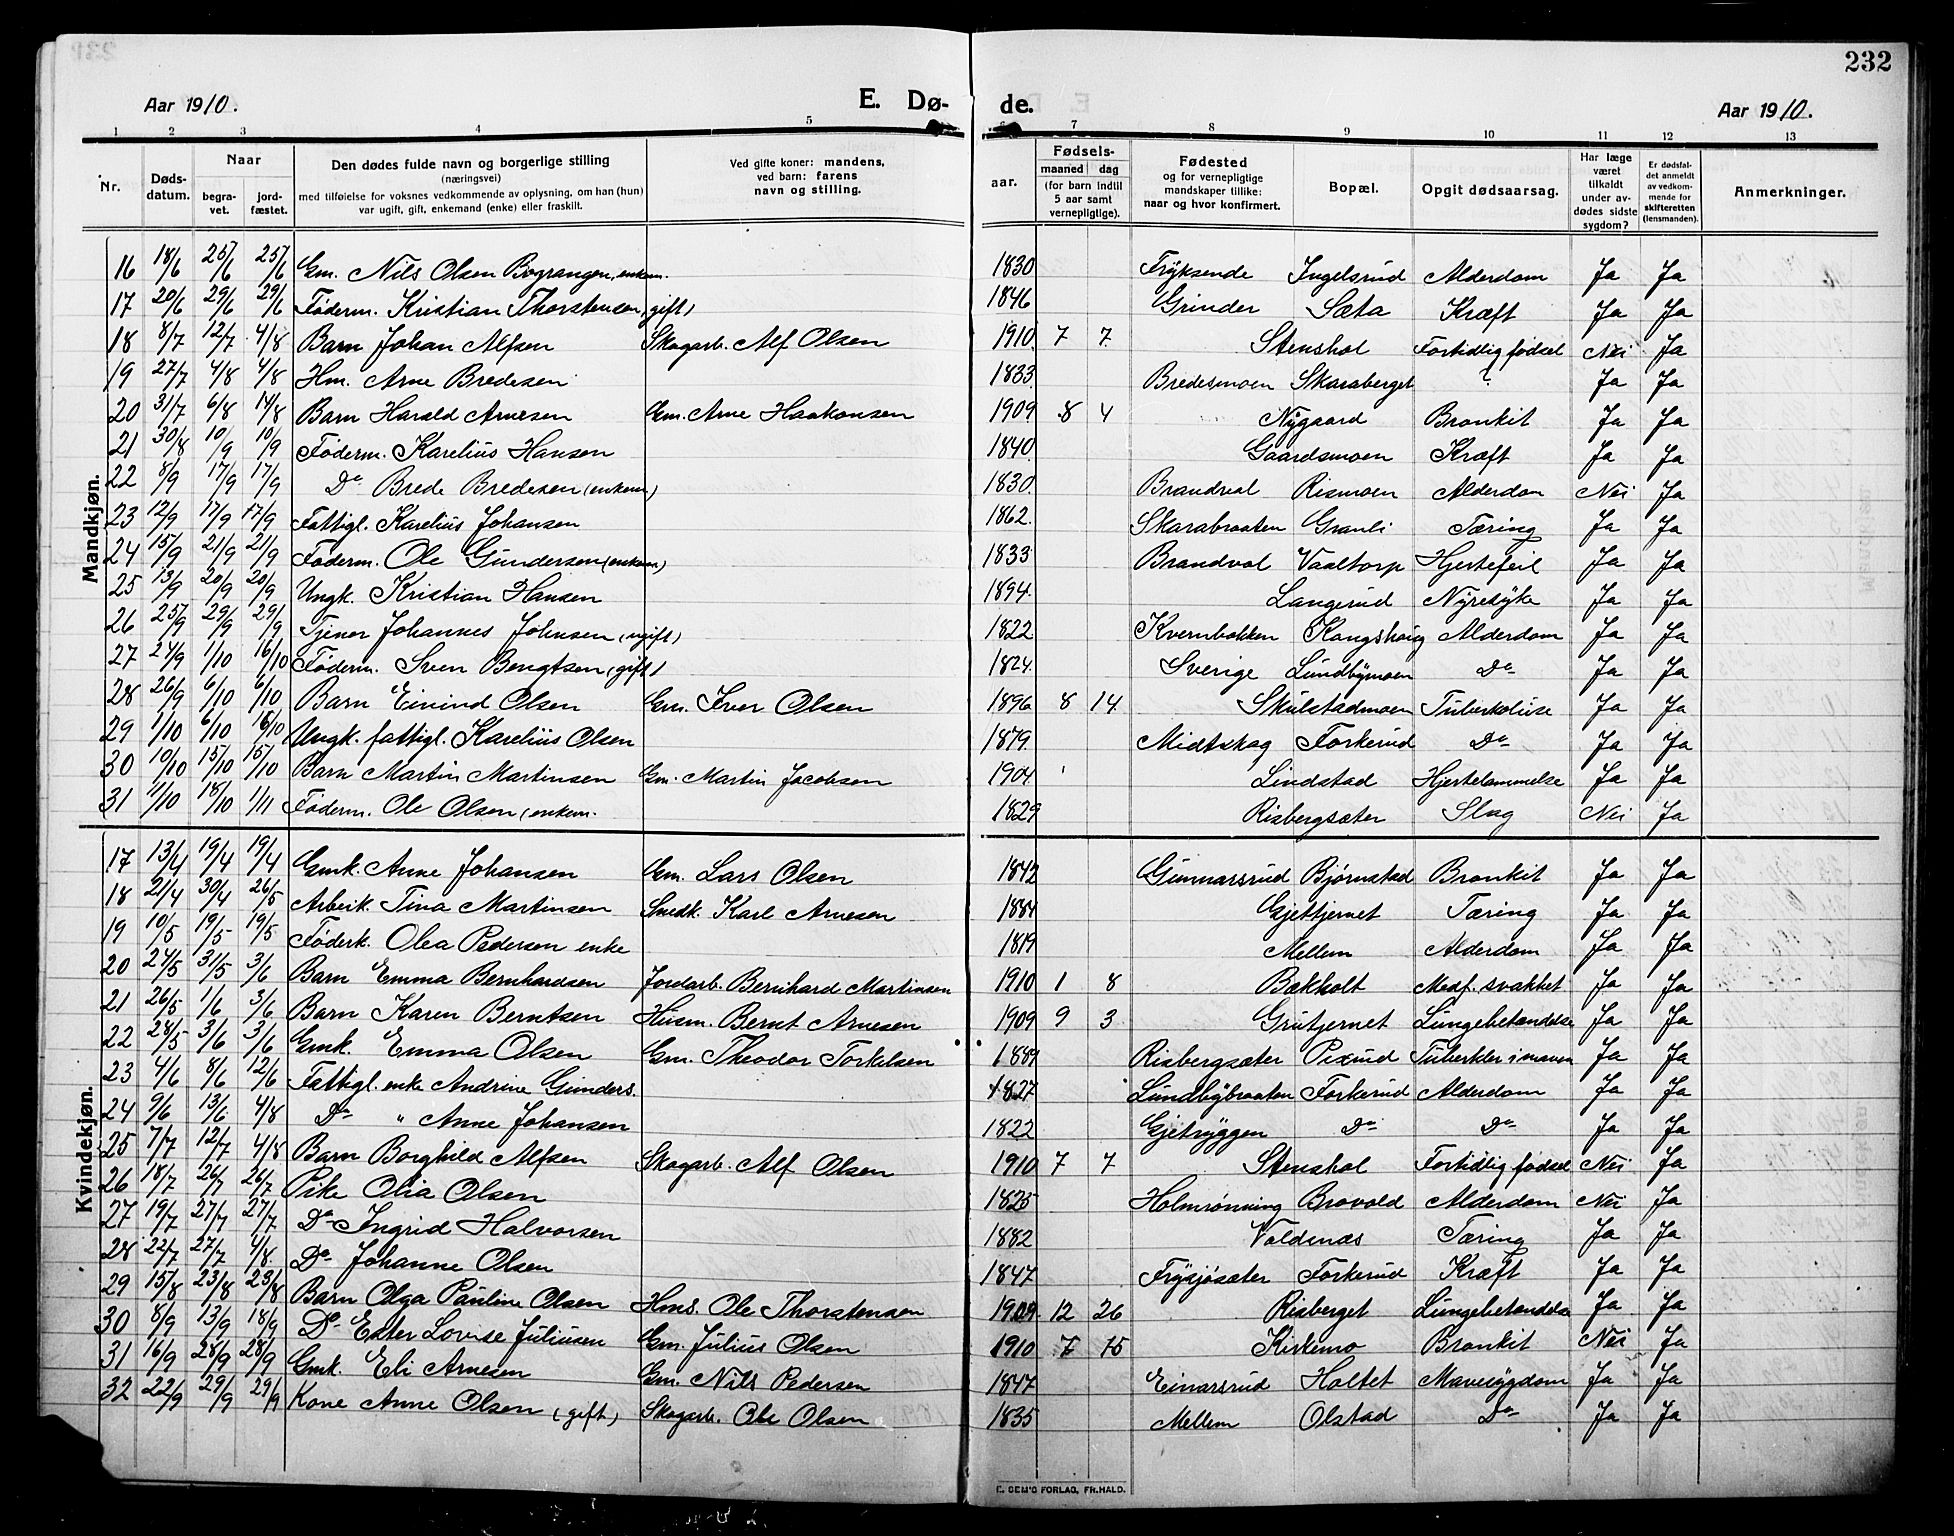 232
Aar 1910. E. Dø- de. Aar 1910.
1 2 3 4 5 6 7 8 9 10 11 12 13
Nr. Døds-datum. Naar begra-vet. jord-fæstet. Den dødes fulde navn og borgerlige stilling (næringsvei) med tilføielse for voksnes vedkommende av oplysning, om han (hun) var ugift, gift, enkemand (enke) eller fraskilt. Ved gifte koner: mandens, ved barn: farens navn og stilling. aar. Fødsels- maaned dag (for barn indtil 5 aar samt vernepligtige). Fødested og for vernepligtige mandskaper tillike: naar og hvor konfirmert. Bopæl. Opgit dødsaarsag. Har læge været tilkaldt under av-dødes sidste sygdom? Er dødsfal-det anmeldt av vedkom-mende for skifteretten (lensmanden). Anmerkninger.
Mandkjøn.
16 18/6 25/6 25/6 Gm. Nils Olsen Bograngen, enkem. 1830 Fryksende Ingelsrud Alderdom Ja Ja
17 20/6 29/6 29/6 Føderm. Kristian Thorstensen, gift) 1846 Grinder Sæta Kræft Ja Ja
18 8/7 12/7 4/8 Barn Johan Alfsen Skogarb. Alf Olsen 1910 7 7 Stenshol Fortidlig fødsel Nei Ja
19 27/7 4/8 4/8 Hm. Arne Bredesen 1833 Bredesmoen Skaraberget ? Ja Ja
20 31/7 6/8 14/8 Barn Harald Arnesen Gm. Arne Haakonsen 1909 8 4 Nygaard Bronkit Ja Ja
21 30/8 10/9 10/9 Føderm. Karelius Hansen 1840 Gaardsmoen Kræft Ja Ja
22 8/9 17/9 17/9 Do Brede Bredesen (enkem) 1830 Brandval Rismoen Alderdom Nei Ja
23 12/9 17/9 17/9 Fattigl. Karelius Johansen 1862 Skarabraaten Granli Tæring Ja Ja
24 15/9 21/9 21/9 Føderm. Ole Gundersen (enkem) 1833 Brandval Vaaltorp Hjertefeil Ja Ja
25 13/9 20/9 20/9 Ungk. Kristian Hansen 1894 Langerud Nyresyke Ja Ja
26 25/9 29/9 29/9 Tjener Johannes Johnsen (ugift) 1822 Kvernbakken Kongshaug Alderdom Ja Ja
27 24/9 1/10 16/10 Føderm. Sven Bengtsen (gift) 1824 Sverige Lundbymoen Do Ja Ja
28 26/9 6/10 6/10 Barn Eivind Olsen Gm. Iver Olsen 1896 8 14 Skulstadmoen Tuberkolose Ja Ja
29 1/10 6/10 16/10 Ungk. fattigl. Karelius Olsen 1879 Midtskog Forkerud Do Ja Ja
30 10/10 15/10 15/10 Barn Martin Martinsen Gm. Martin Jacobsen 1904 Lindstad Hjertelammelse Ja Ja
31 11/10 18/10 1/11 Føderm. Ole Olsen (enkem. 1829 Risbergsæter Slag Nei Ja
Kvindekjøn.
17 13/4 19/4 19/4 Gmk. Anne Johansen Gm. Lars Olsen 1842 Gunnarsrud Bjørnstad Bronkit Ja Ja
18 21/4 30/4 26/5 Arbeik. Tina Martinsen Smedk. Karl Arnesen 1884 Gjettjernet Tæring Ja Ja
19 10/5 19/5 19/5 Føderk. Olea Pedersen enke 1819 Mellem Alderdom Ja Ja
20 24/5 31/5 3/6 Barn Emma Bernhardsen Jordarb. Bernhard Martinsen 1910 1 8 Bækholt Medf. svakhet Ja Ja
21 26/5 1/6 3/6 Barn Karen Berntsen Husm. Bernt Arnesen 1909 9 3 Grutjernet Lungebetændelse Ja Ja
22 28/5 3/6 3/6 Gmk. Emma Olsen Gm. Theodor Torkelsen 1887 Risbergsæter Pixrud Tuberkler i maven Ja Ja
23 4/6 8/6 12/6 Fattigl. enke Andrine Gunders. 1827 Lundbybraaten Forkerud Alderdom Ja Ja
24 9/6 13/6 4/8 Do " Anne Johansen 1822 Gjetryggen Do Do Ja Ja
25 7/7 12/7 4/8 Barn Borghild Alfsen Skogarb. Alf Olsen 1910 7 7 Stenshol Fortidlig fødsel Nei Ja
26 18/7 26/7 26/7 Pike Olia Olsen 1825 Holmrønning Brovold Alderdom Nei Ja
27 19/7 27/7 27/7 Do Ingrid Halvorsen 1882 Valdenæs Tæring Ja Ja
28 22/7 27/7 4/8 Do Johanne Olsen 1847 Frysjøsæter Forkerud Kræft Ja Ja
29 15/8 23/8 23/8 Barn Olga Pauline Olsen Hms. Ole Thorstensen 1909 12 26 Risberget Lungebetændelse Ja Ja
30 8/9 13/9 18/9 Do Ester Lovise Juliusen Gm. Julius Olsen 1910 7 15 Kirkemo Bronkit Nei Ja
31 16/9 28/9 28/9 Gmk. Eli Arnesen Gm. Nils Pedersen 1847 Einarsrud Holtet Mavesygdom Ja Ja
32 22/9 29/9 29/9 Kone Anne Olsen (gift) Skogarb. Ole Olsen 1835 Mellem Olstad Do Ja Ja
E. SEM'S FORLAG, FR.HALD.